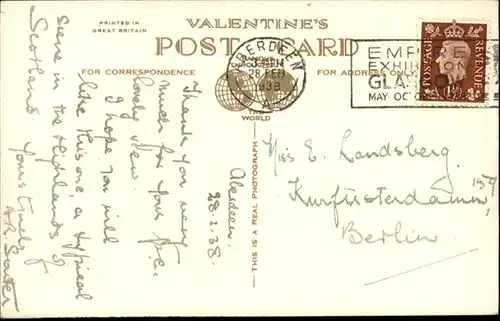 PRINTED IN
GREAT BRITAIN
VALENTINE'S
POST CARD
FOR CORRESPONDENCE
FOR ADDRESS ONLY
THE
WORLD
THIS IS A REAL PHOTOGRAPH
ABERDEEN
28 FEB
1938
EMPIRE
EXHIBITION
GLA
MAY-OC
POSTAGE
REVENUE
Aberdeen.
28.2.38.
Thank you very
much for your p.c.
lovely view.
I hope you will
like this one, a typical
Scene in the Highlands of
Scotland.
Yours truly,
Miss E. Landsberg.
Kurfürsterdamm
Berlin.